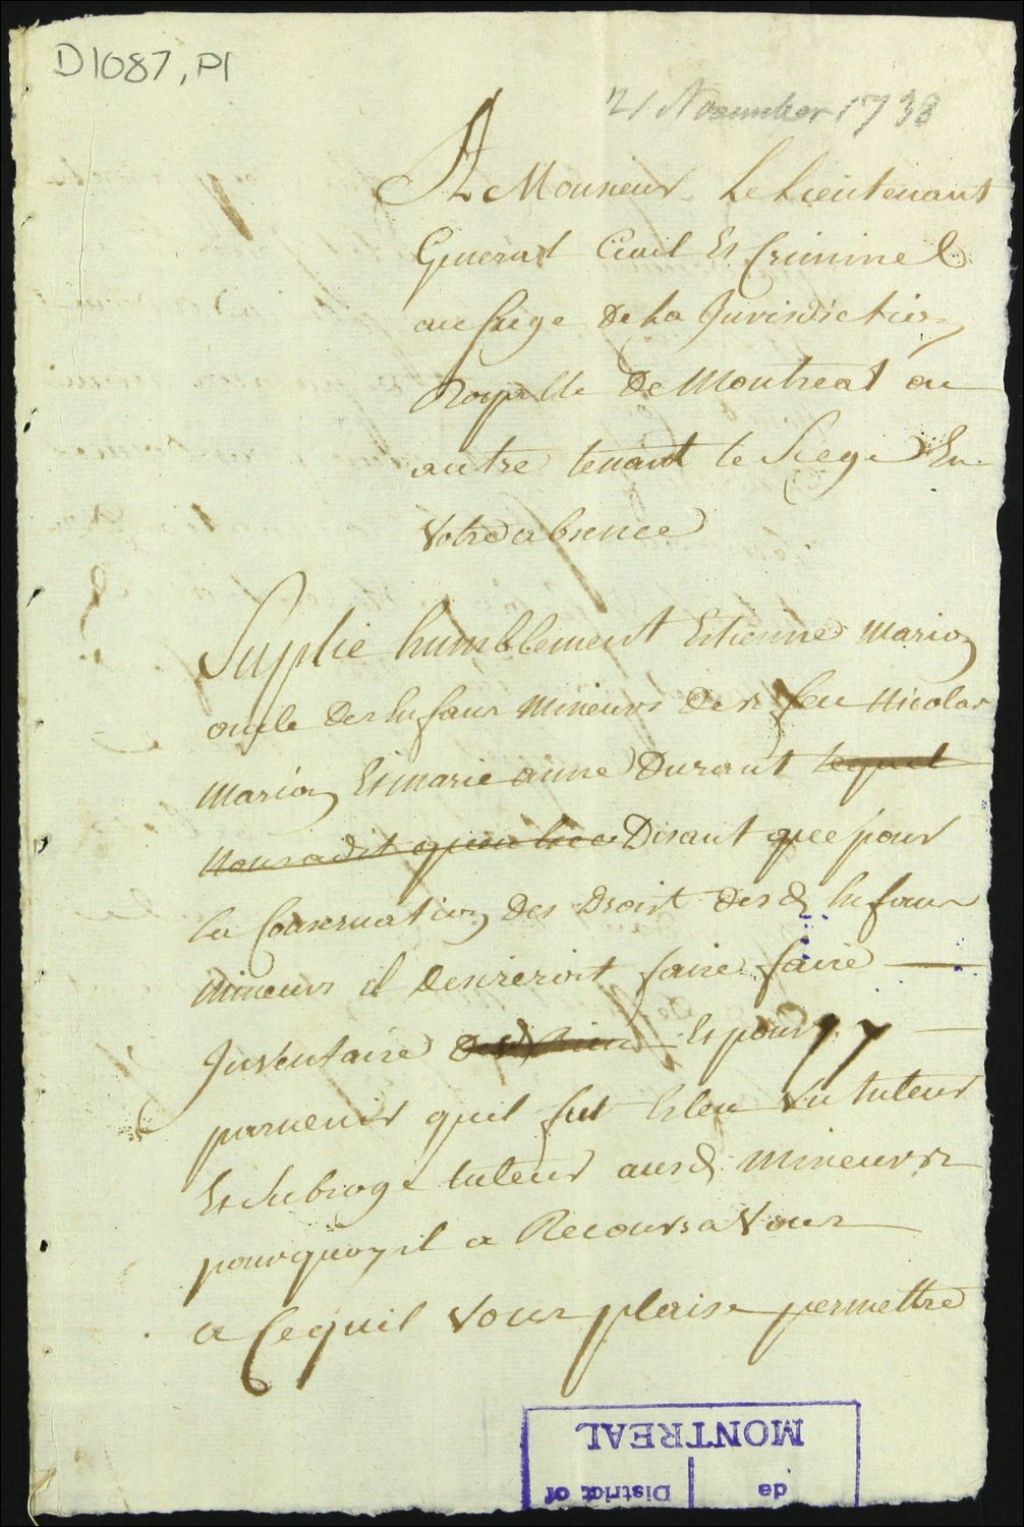 D1087, P1
21 November 1738
A Monsieur Le Lieutenant
General Civil Et Criminel
au siege De La Jurisdiction
Royalle De Montreal ou
autre tenant le Siege En
Votre absence
Suplie humblement Estienne Marion
oncle Des Enfans Mineurs De feu Nicolas
Marion Et Marie anne Durant lequel
nous a dit que Disant que pour
la Conservation Des Droist Desd Enfans
Mineurs il Desireroit faire faire
Inventaire Desd Biens Et pour y
parvenir quil fut Esleu Un tuteur
Et Subroge tuteur ausd Mineurs
pourquoy il a Recours a Vous
a Ce quil Vous plaise permettre
MONTREAL
de
District of